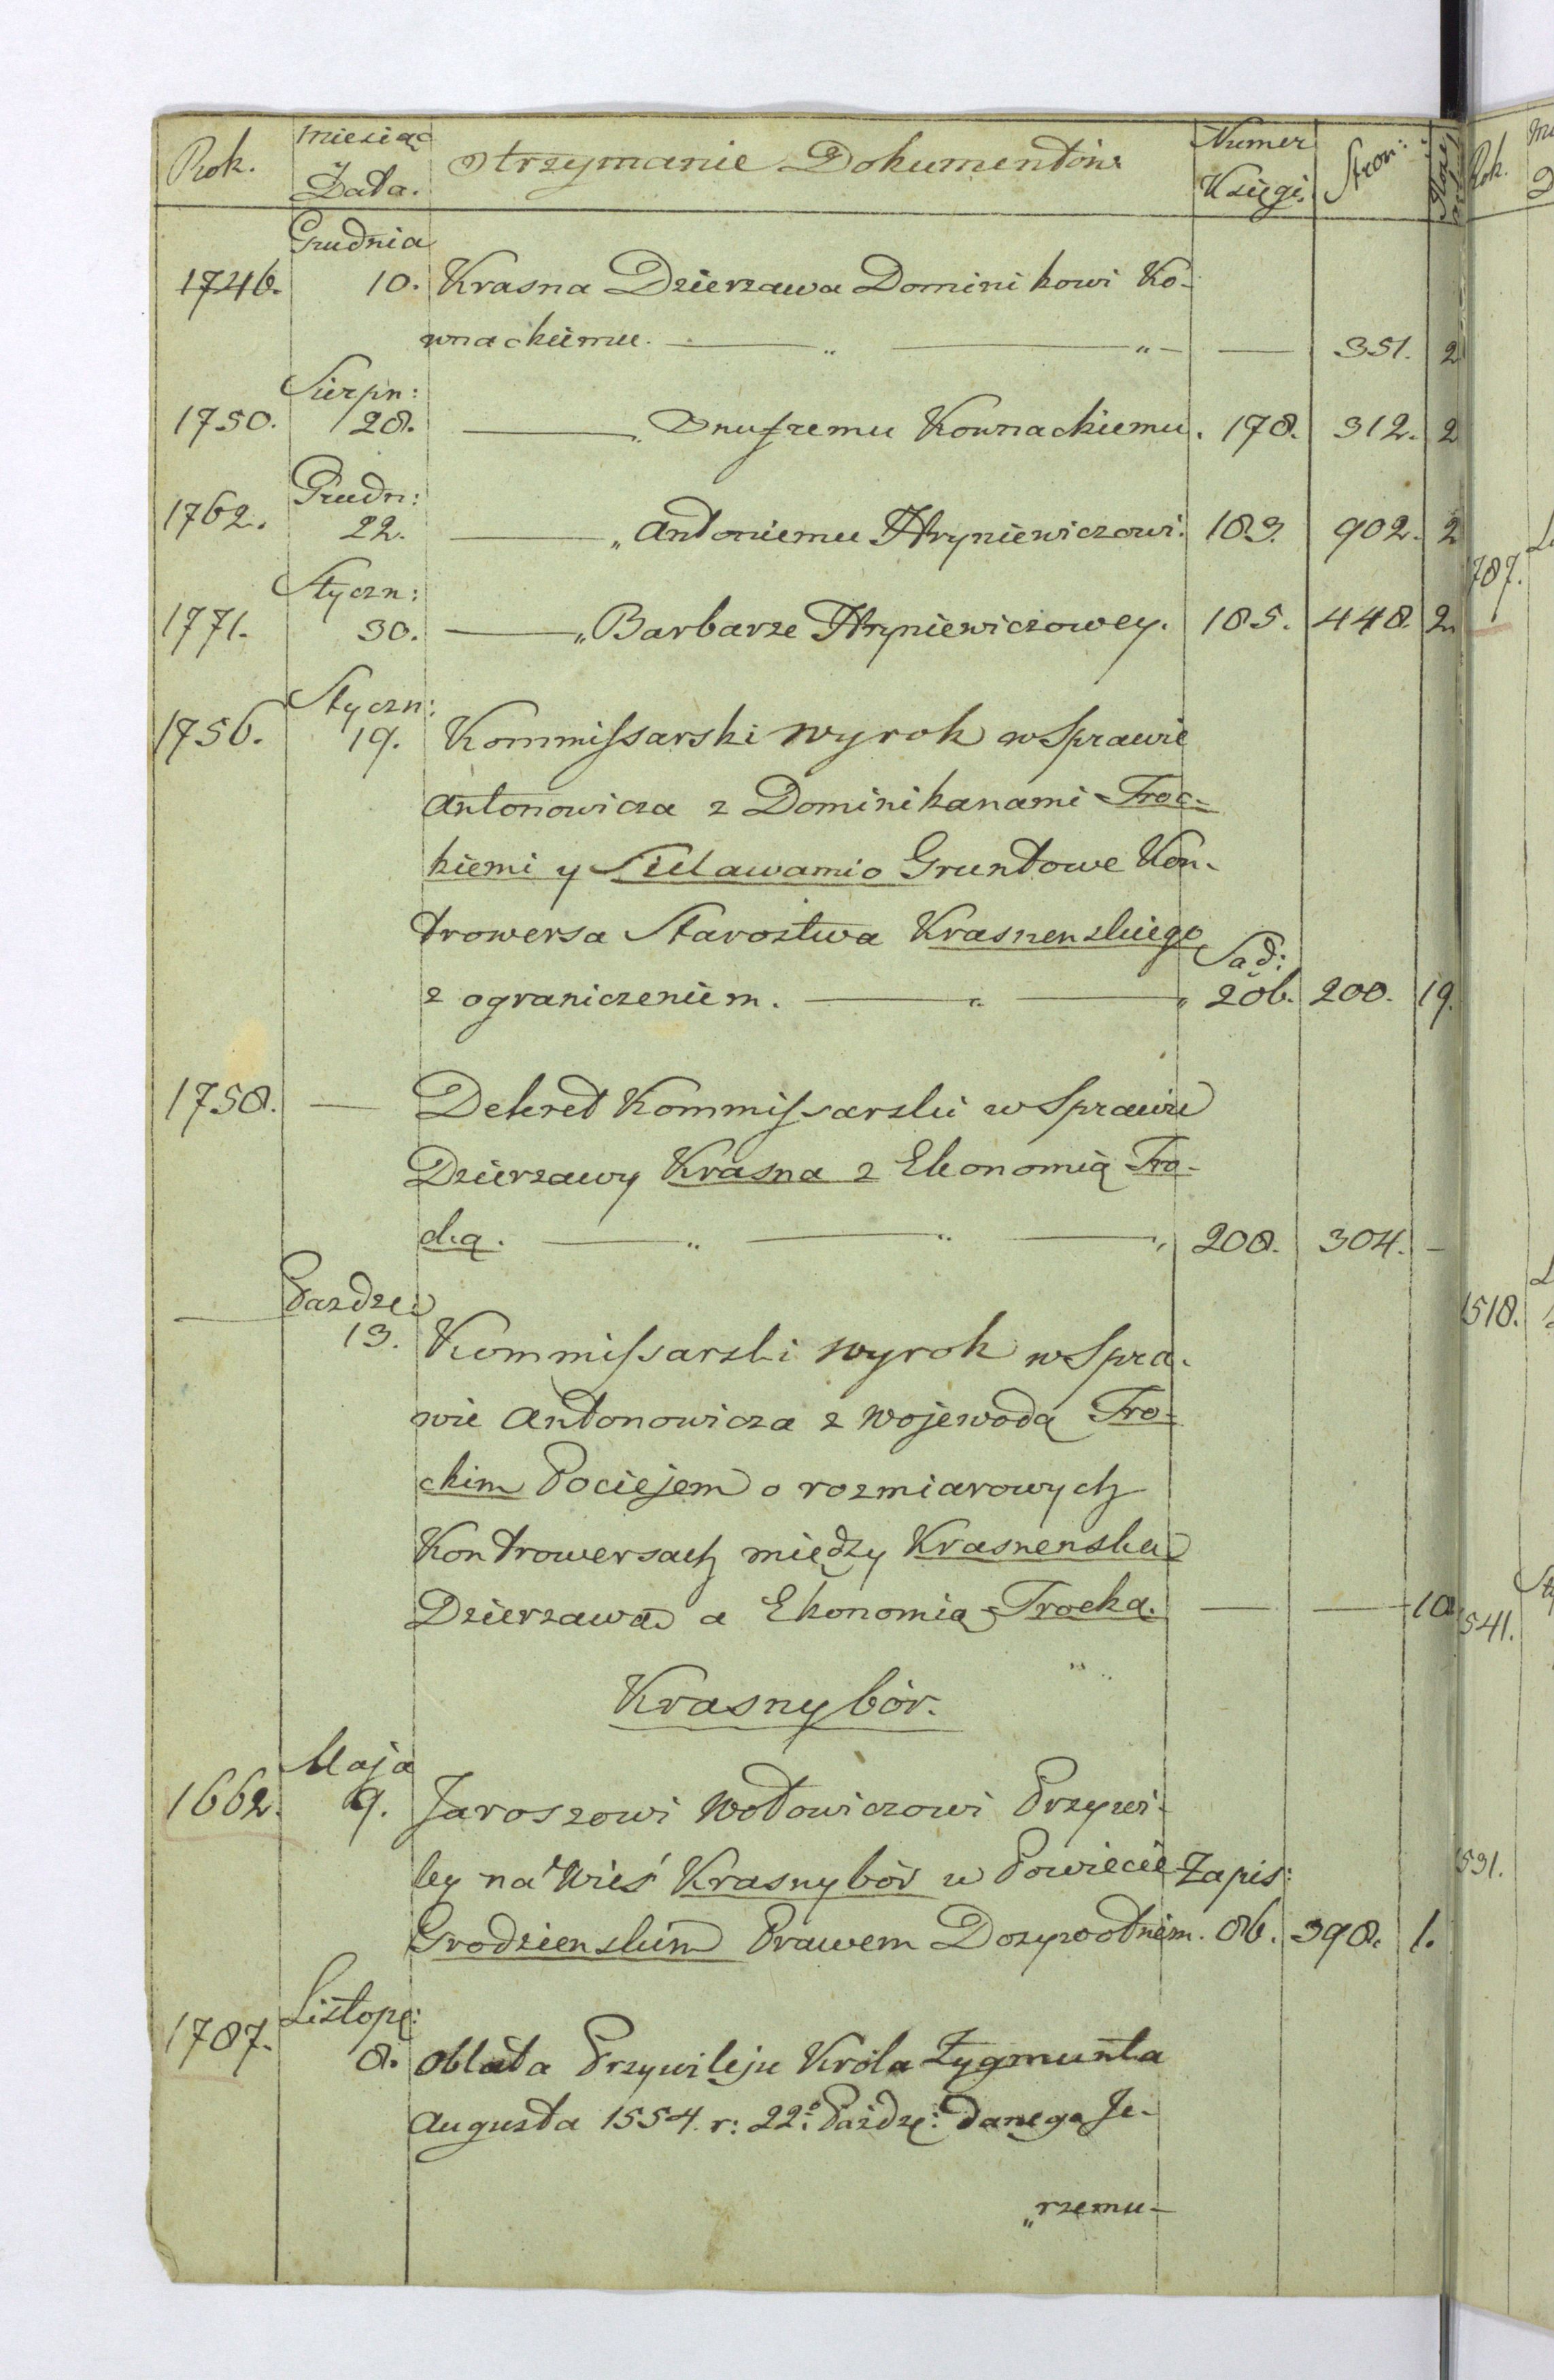 Rok. Miesiąc Data. Otrzymanie Dokumentów Numer Księgi. Stron:
Grudnia
1746. 10. Krasna Dzierzawa Dominikowi Ko-
wnackiemu. — „ — „ — — 351. 2
Sierpn:
1750. 28. — „ Onufremu Kownackiemu. 178. 312. 2
Grudn:
1762. 22. — „ Antoniemu Hryniewiczowi. 183. 902. 2
Styczn:
1771. 30. — „ Barbarze Hryniewiczowey. 185. 448. 2
Styczn:
1756. 19. Kommissarski wyrok w Sprawie
Antonowicza z Dominikanami Troc-
kiemi y Sielawami o Gruntowe Kon-
trowersa Starostwa Krasnenskiego
Sąd:
z ograniczeniem. — „ — „ 206. 200. 19.
1758. — Dekret Kommissarski w Sprawie
Dzierzawy Krasna z Ekonomią Tro-
cką. — „ — „ — „ 208. 304. —
— Pazdze:
13. Kommissarski wyrok w Spra-
wie Antonowicza z Wojewodą Tro-
ckim Pociejem o rozmiarowych
Kontrowersach między Krasnenską
Dzierzawą a Ekonomią Trocką. — — 10
Krasnybór.
Maja
1662. 9. Jaroszowi Wołowiczowi Przywi-
ley na Wieś Krasnybór w Powiecie Zapis:
Grodzienskim Prawem Dozywotnim. 86. 398. 1.
Listop:
1787. 8. Oblata Przywileju Króla Zygmunta
Augusta 1554. r: 22º: Paźdz: danego Je-
„rzemu-
Rok.
787.
1518.
541.
531.